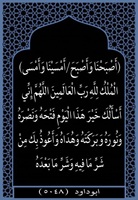 (أَصْبَحْنَا وَأَصْبَحَ/أَمْسَيْنَا وَأَمْسَى)
الْمُلْكُ لِلَّهِ رَبِّ الْعَالَمِينَ اللَّهُمَّ إِنِّي
أَسْأَلُكَ خَيْرَ هَذَا الْيَوْمِ فَتْحَهُ وَنَصْرَهُ
وَنُورَهُ وَبَرَكَتَهُ وَهُدَاهُ وَأَعُوذُ بِكَ مِنْ
شَرِّ مَا فِيهِ وَشَرِّ مَا بَعْدَهُ
ابوداود (٥٠٤٨)